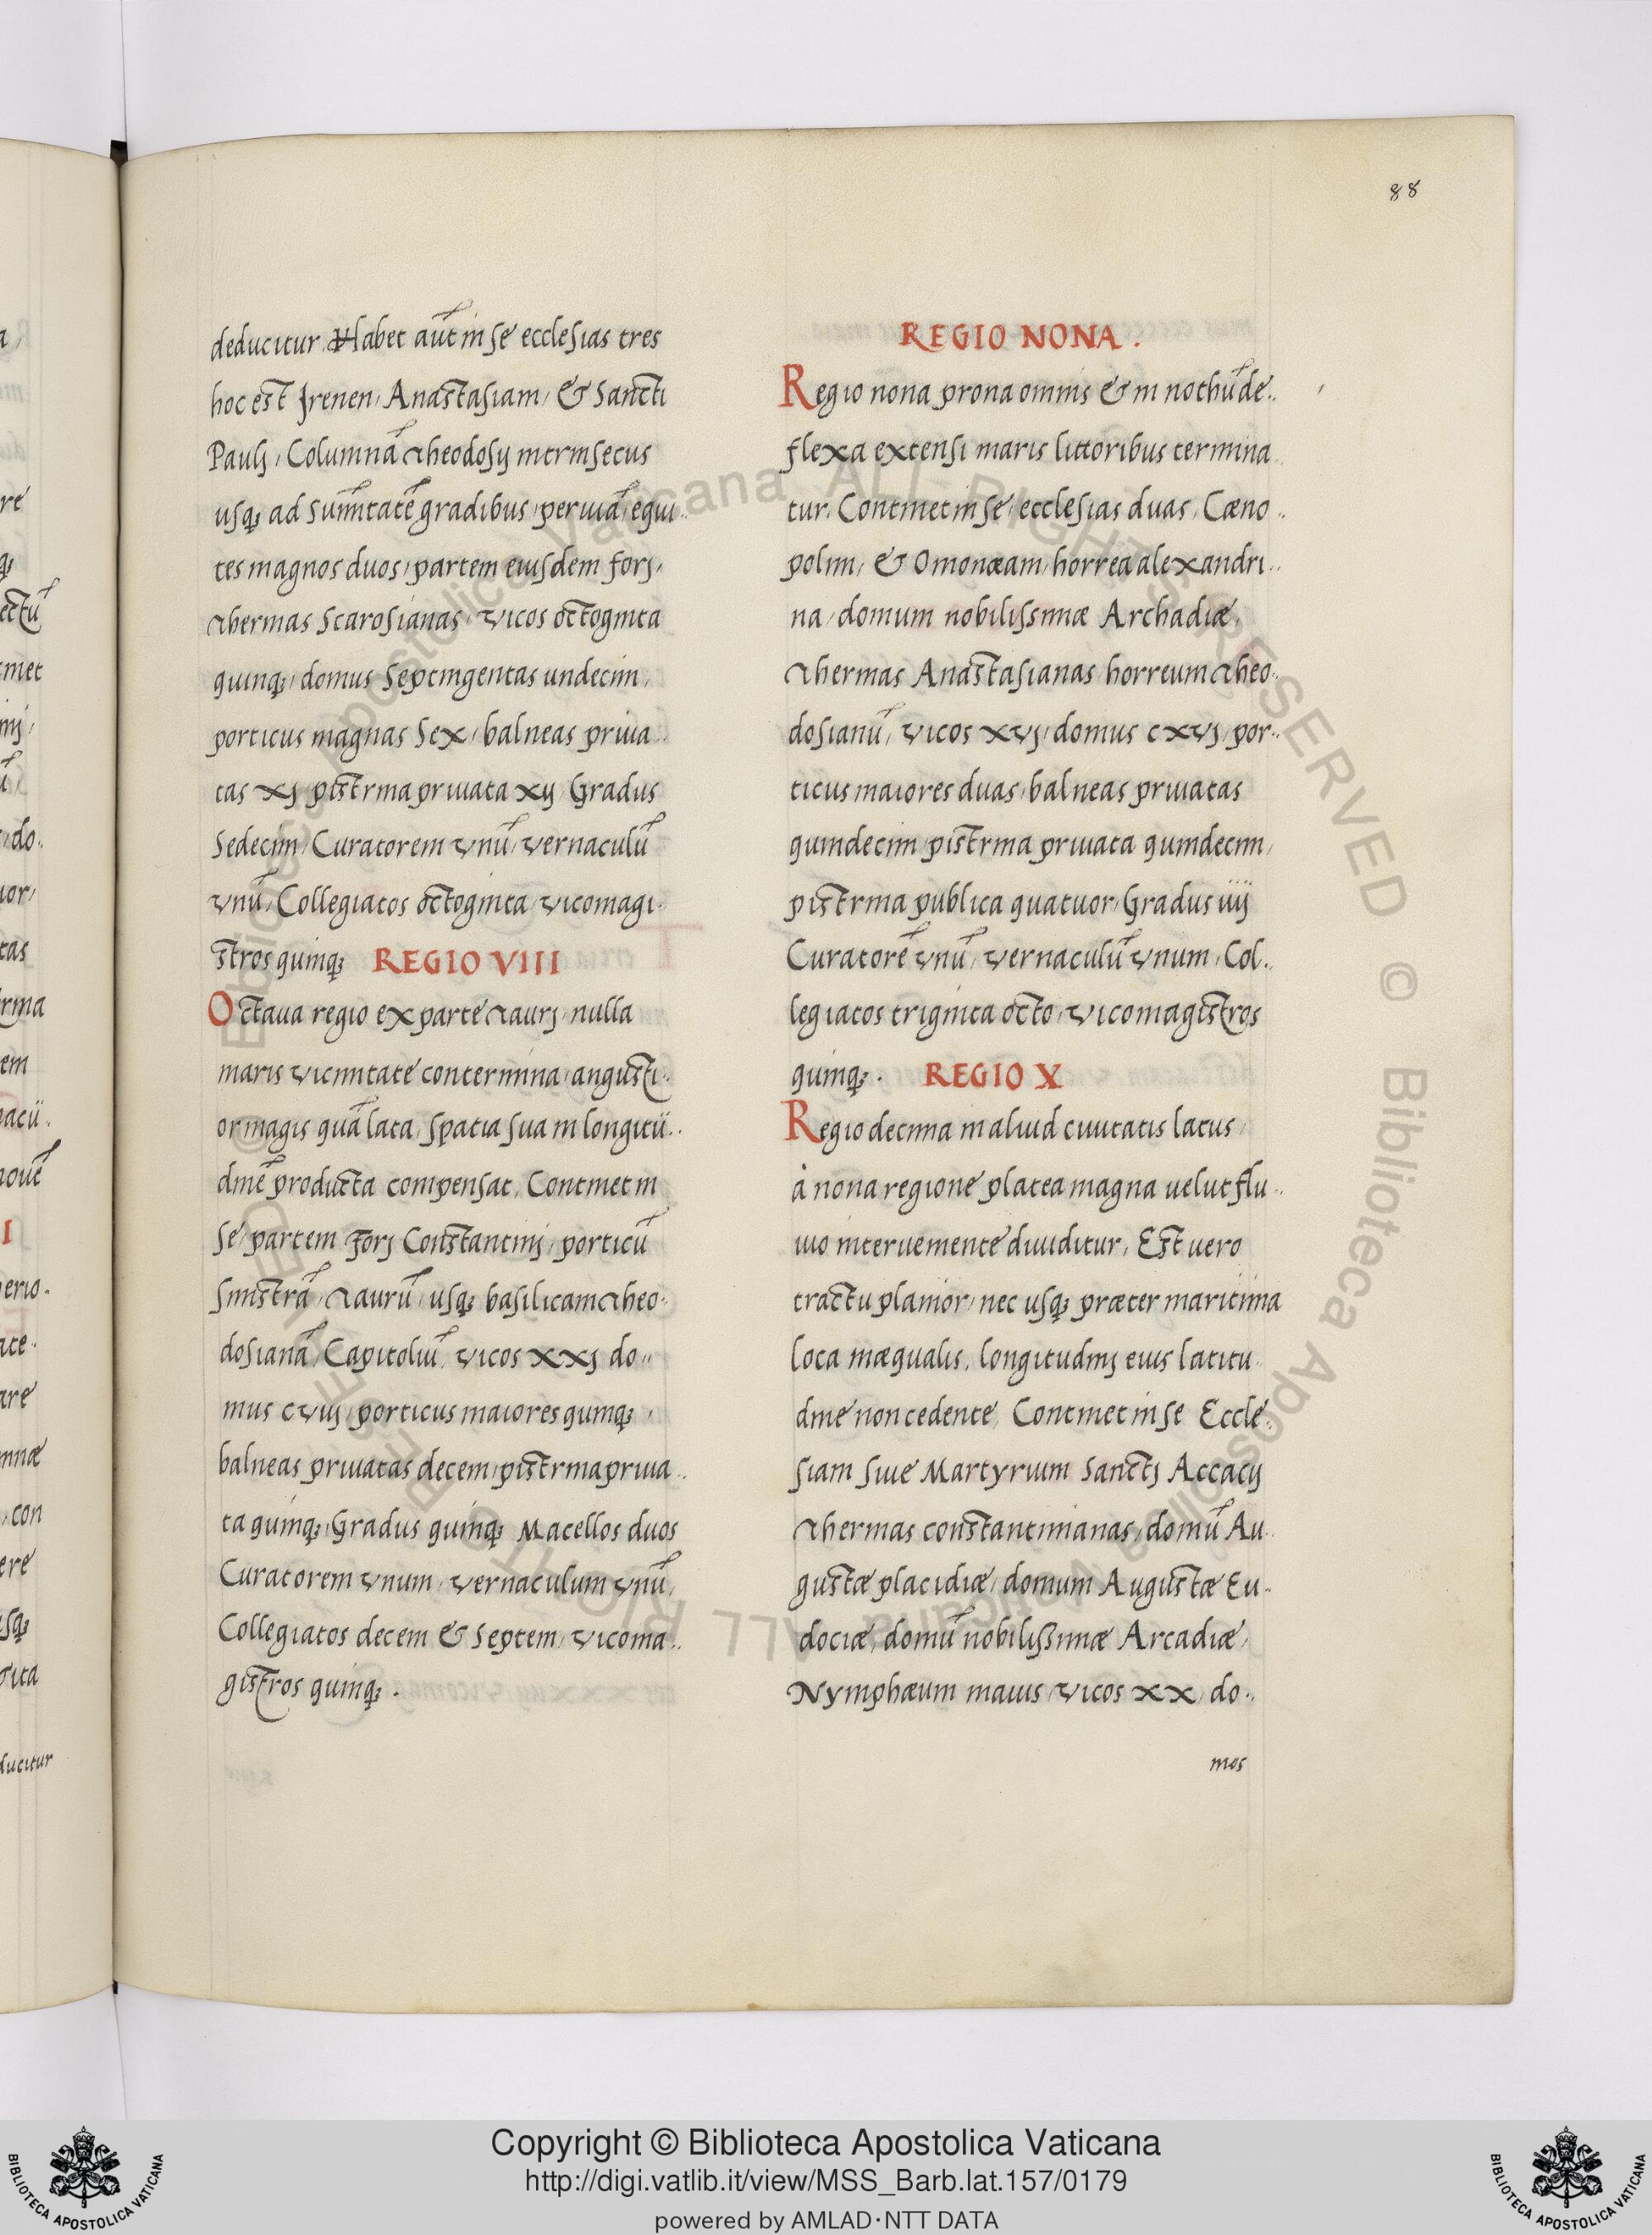 88
deducitur. Habet aūt in se ecclesias tres
hoc est Irenen, Anastasiam, & Sancti
Paulj, Columnā Theodosij intrinsecus
usq; ad summitatē gradibus, peruiā, equi..
tes magnos duos, partem eiusdem forj,
Thermas Scarosianas, vicos octoginta
quinq;, domus Septingentas undecim,
porticus magnas Sex, balneas priua..
tas xj pistrina priuata xij Gradus
Sedecim, Curatorem vnū, vernaculū
vnū, Collegiatos octoginta, vicomagi..
stros quinq; REGIO VIII
Octaua regio ex parte Taurj, nulla
maris vicinitate contermina, angusti..
or magis quā lata, spatia sua in longitu..
dinē producta compensat, Continet in
se, partem forj Constantinj, porticū
sinistrā, Taurū, usq; basilicam Theo..
dosianā, Capitoliū, vicos xxj do..
mus cviij, porticus maiores quinq;,
balneas priuatas decem, pistrina priua..
ta quinq;, Gradus quinq; Macellos duos
Curatorem vnum, vernaculum vnū,
Collegiatos decem & Septem, vicoma..
gistros quinq; .
REGIO NONA .
Regio nona prona omnis & in nothū de..
flexa extensi maris littoribus termina..
tur. Continet in se, ecclesias duas, Cæno..
polim, & Omonæam, horrea alexandri..
na, domum nobilissimæ Archadiæ,
Thermas Anastasianas, horreum Theo..
dosianū, vicos xvj, domus cxvj, por..
ticus maiores duas, balneas priuatas
quindecim, pistrina priuata quindecim,
pistrina publica quatuor, Gradus iiij
Curatorē vnū, vernaculū vnum, Col..
legiatos triginta octo, vicomagistros
quinq; . REGIO X
Regio decima in aliud ciuitatis latus,
à nona regione platea magna uelut flu..
uio interueniente diuiditur, Est uero
tractu planior, nec usq; præter maritima
loca inæqualis, longitudinj eius latitu..
dine non cedente, Continet in se Eccle..
siam siue Martyrium Sanctj Accacij
Thermas constantinianas, domū Au..
gustæ placidiæ, domum Augustæ Eu..
dociæ, domū nobilissimæ Arcadiæ,
Nymphæum maius, vicos xx, do..
mos
Copyright © Biblioteca Apostolica Vaticana
http://digi.vatlib.it/view/MSS_Barb.lat.157/0179
powered by AMLAD·NTT DATA